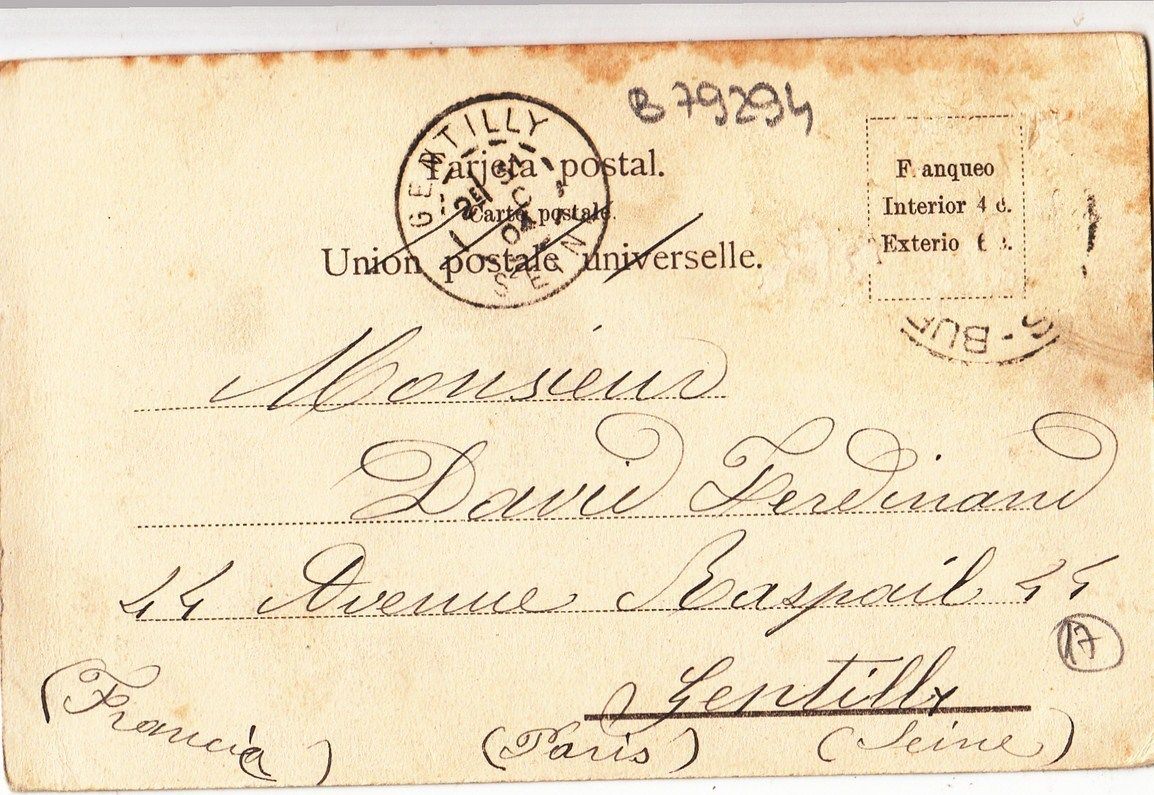 B 79294
GENTILLY
SEINE
Tarjeta postal.
Carte postale.
Union postale universelle.
F anqueo
Interior 4 c.
Exterio 6 c.
S - BUE
Monsieur
David Ferdinand
44 Avenue Raspail 44
17
Gentilly
(Francia) (Paris) (Seine)